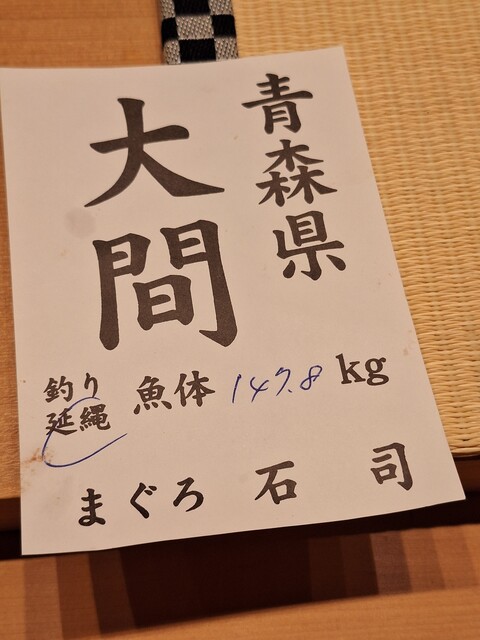 青森県
大間
釣り
延縄
魚体 147.8 kg
まぐろ 石 司